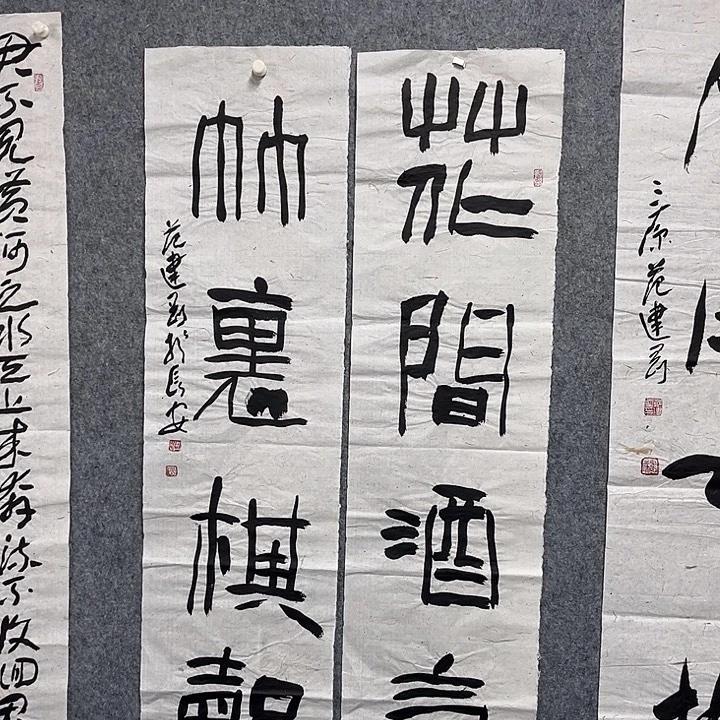 三原范建
花間酒
竹裏棋聲
范建於長安
君不見黃河之水天上來奔流不復回君